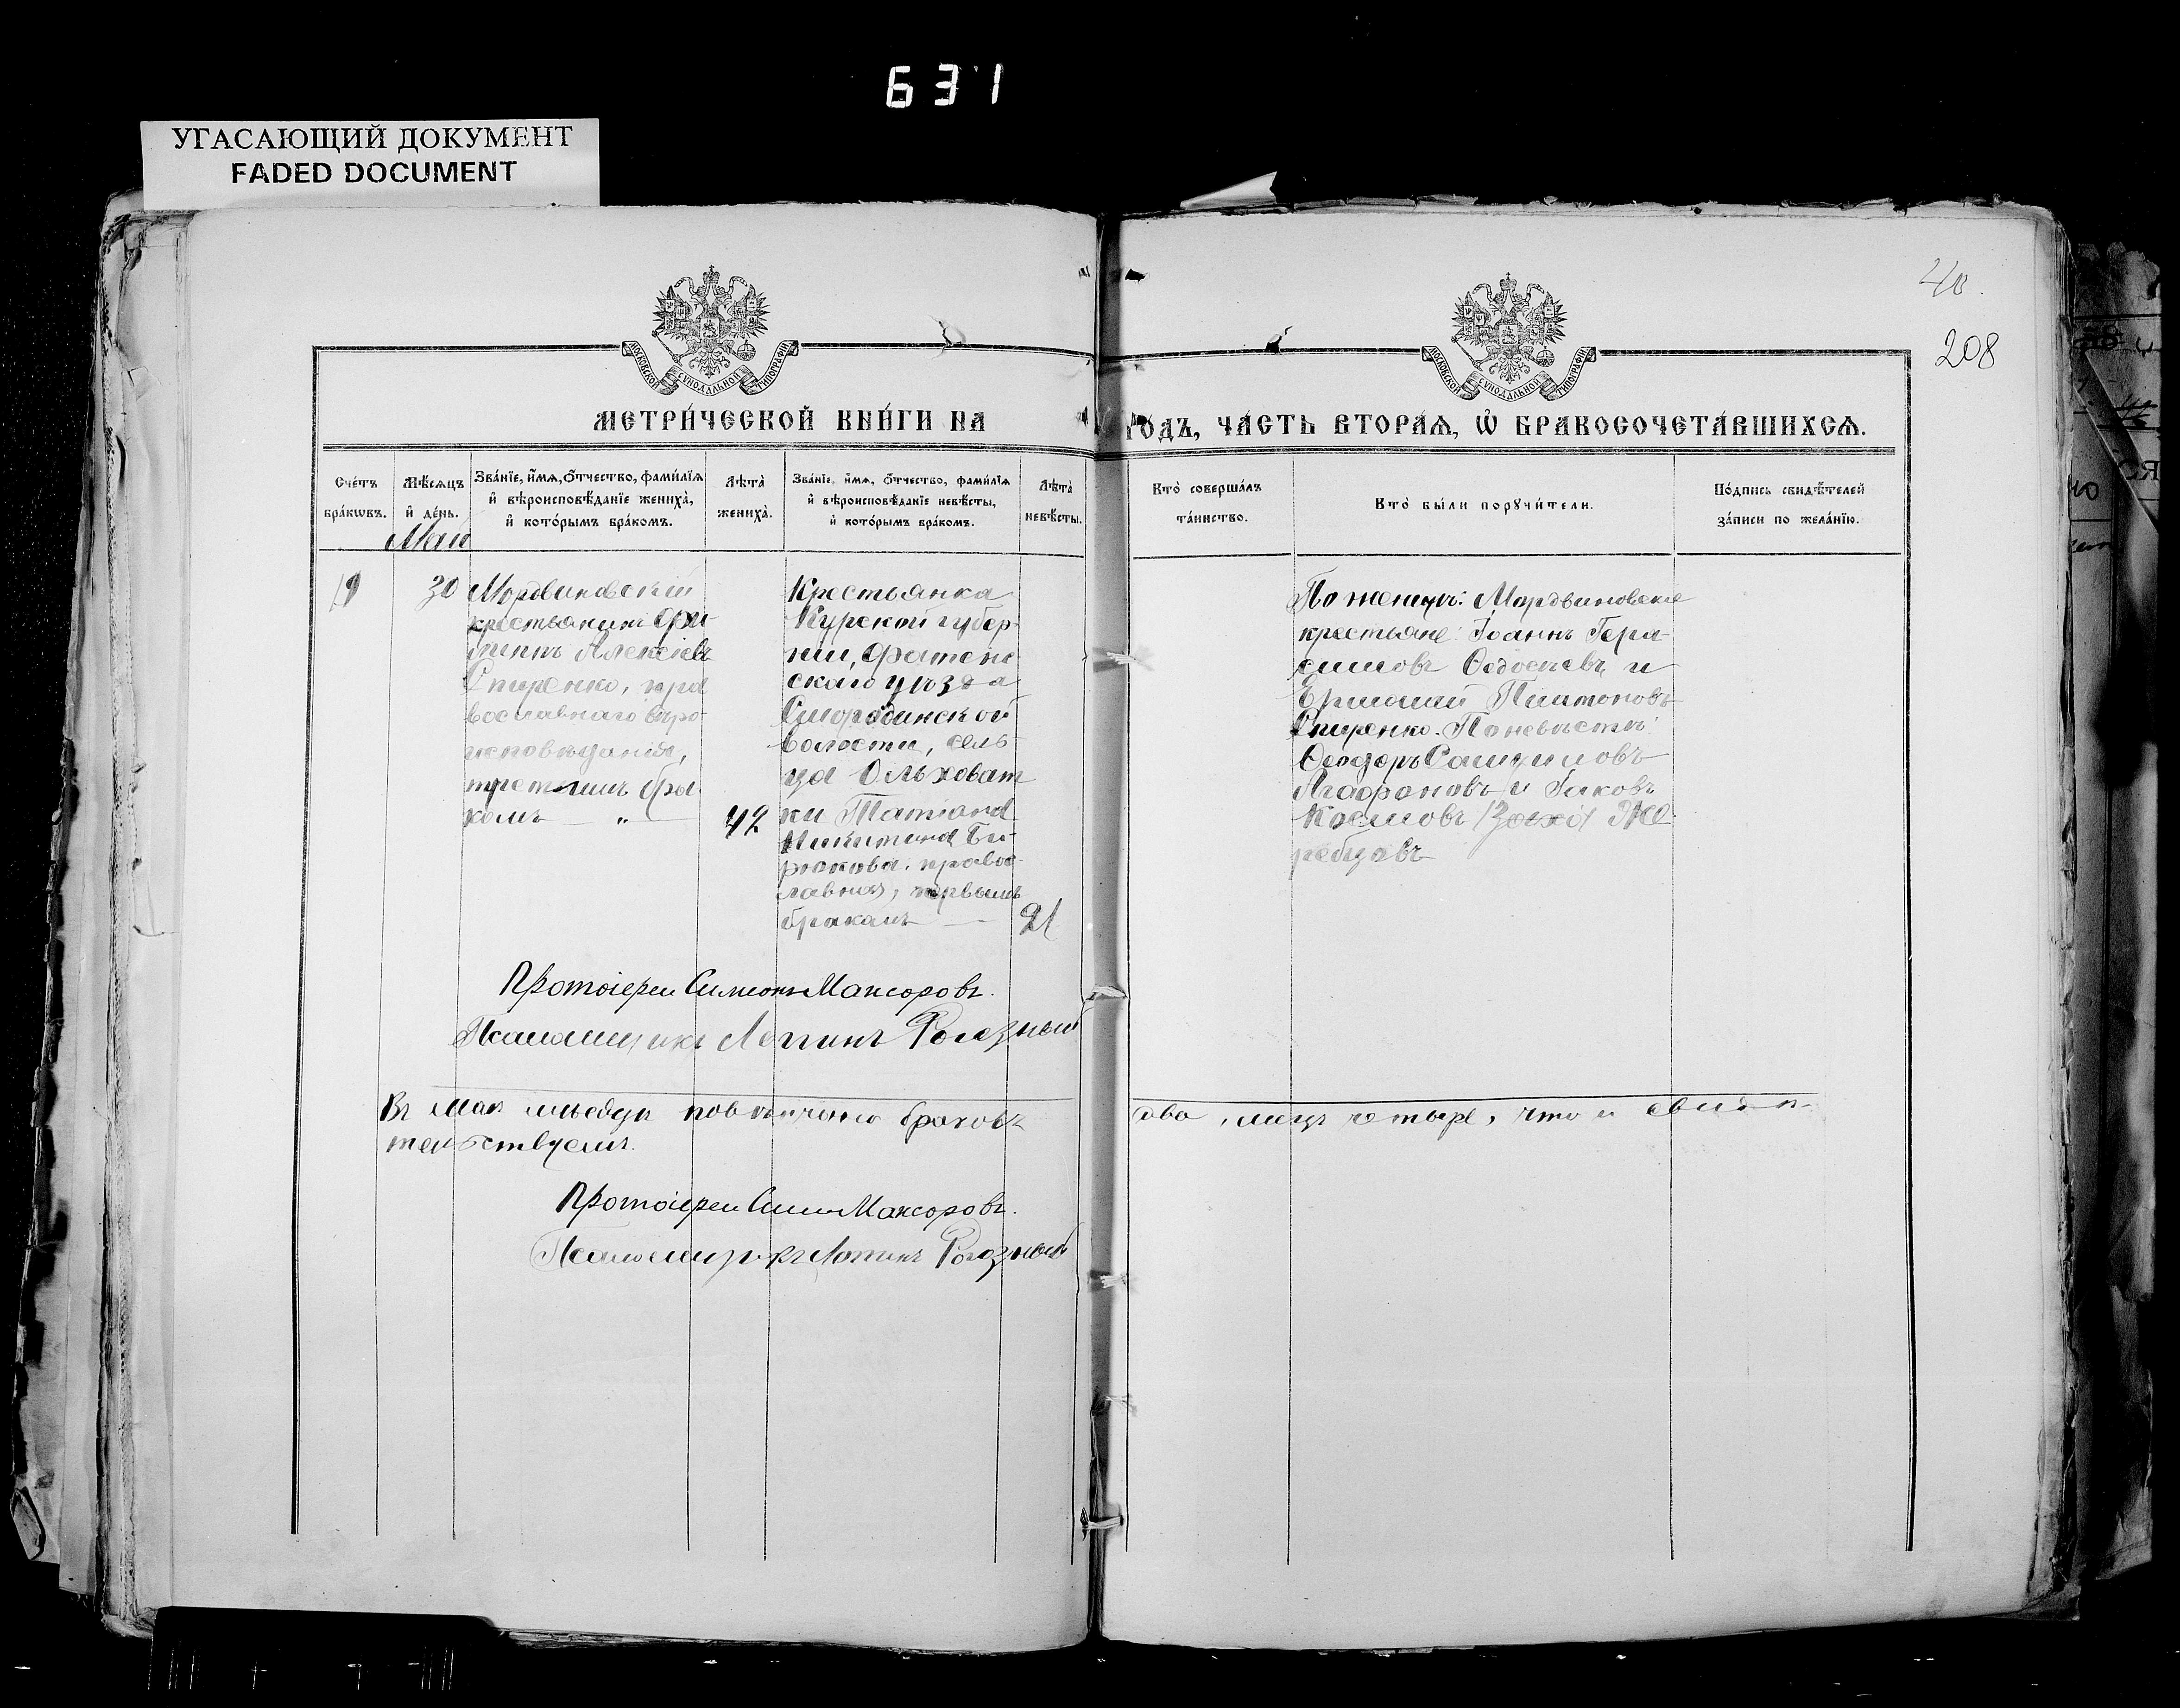 631
УГАСАЮЩИЙ ДОКУМЕНТ
FADED DOCUMENT
40
208
МОСКОВСКОЙ СУНОДАЛЬНОЙ ТИПОГРАФІИ
МОСКОВСКОЙ СУНОДАЛЬНОЙ ТИПОГРАФІИ
МЕТРИ́ЧЕСКОЙ КНИ́ГИ НА
ГОДЪ, ЧА́СТЬ ВТОРАѦ, Ѡ҆ БРАКОСОЧЕТА́ВШИХСѦ.
Сче́тъ
бра́кѡвъ.
Мѣ́сѧцъ
и҆ де́нь.
Зва́нїе, и҆́мѧ, ѻ҆́тчество, фами́лїѧ
и҆ вѣроисповѣ́данїе жениха̀,
и҆ кото́рымъ бра́комъ.
Лѣта̀
жениха̀.
Зва́нїе, и҆́мѧ, ѻ҆́тчество, фами́лїѧ
и҆ вѣроисповѣ́данїе невѣ́сты,
и҆ кото́рымъ бра́комъ.
Лѣта̀
невѣ́сты.
Кто̀ соверша́лъ
та́инство.
Кто̀ бы́ли порꙋчи́тели.
По́дпись свидѣ́телей
за́писи по жела́нїю.
Май
9
30
Мордвиновскій
крестьянинъ Фи-
липпъ Алексіевъ
Спиренко, пра
вославнаго вѣро-
исповѣданія,
третьимъ бра
комъ — „ —
42
Крестьянка
Курской губер-
ніи, Фатеж
скаго уѣзда
Смородинской
волости, сель-
ца Ольховат
ки Татіана
Никитина Би-
рюкова, правос
лавная, первымъ
бракомъ —
21
По женихѣ: Мордвиновскіе
крестьяне: Іоаннъ Гера-
симовъ Ѳедосѣевъ и
Ермолай Платоновъ
Спиренко. По невѣстѣ:
Ѳеодоръ Самуиловъ
Агафоновъ и Іаковъ
Космовъ Же
ребцовъ
Протоіерей Симеонъ Максоровъ.
Псаломщикъ Логинъ Рогозный
Въ маѣ мѣсяцѣ повѣнчано браковъ
два, лицъ четыре, что и свидѣ-
тельствуемъ.
Протоіерей Симеонъ Максоровъ.
Псаломщикъ Логинъ Рогозный